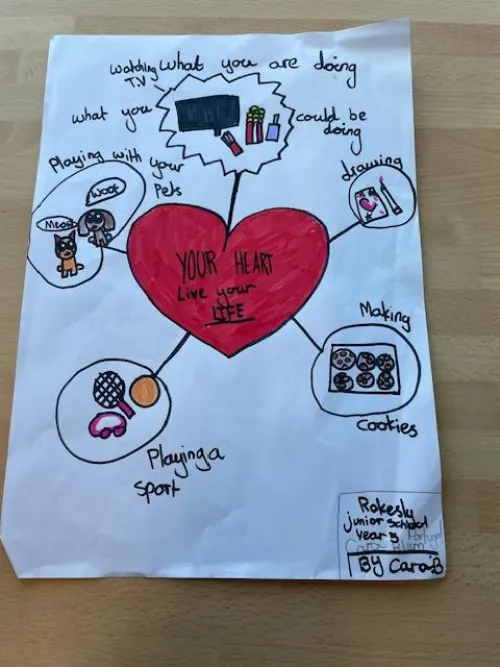 watching what you are doing
T.V
what you could be
doing
Playing with your
Pets
drawing
Woof
Meow
YOUR HEART
Live your
LIFE
Making
Cookies
Playing a
Sport
Rokesly
junior school
Year 3
By Cara B